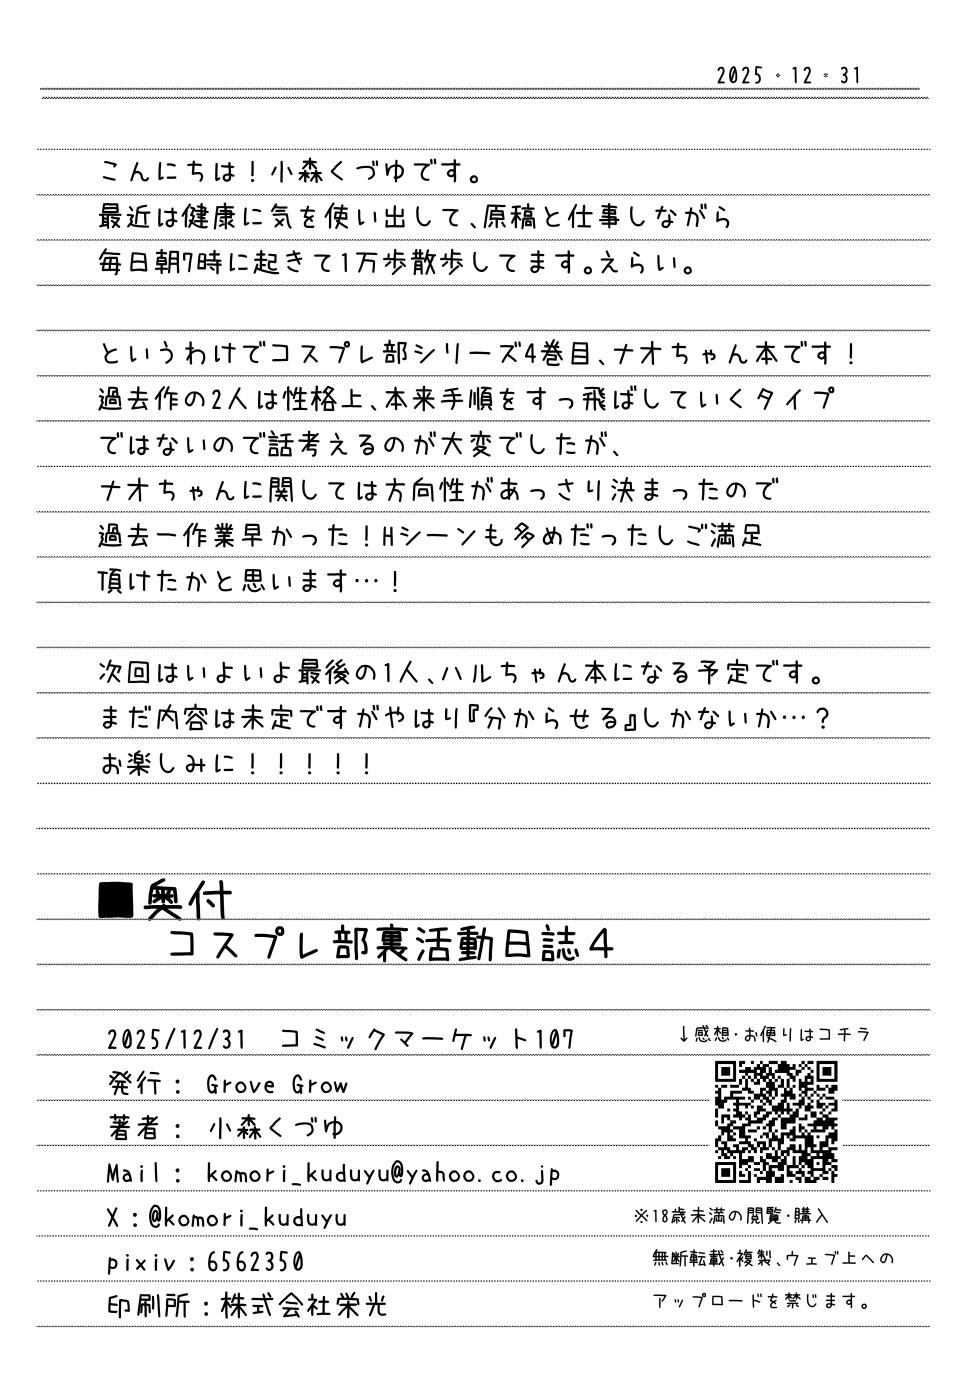 2025・12・31
こんにちは！小森くづゆです。
最近は健康に気を使い出して、原稿と仕事しながら
毎日朝7時に起きて1万歩散歩してます。えらい。
というわけでコスプレ部シリーズ4巻目、ナオちゃん本です！
過去作の2人は性格上、本来手順をすっ飛ばしていくタイプ
ではないので話考えるのが大変でしたが、
ナオちゃんに関しては方向性があっさり決まったので
過去一作業早かった！Hシーンも多めだったしご満足
頂けたかと思います…！
次回はいよいよ最後の1人、ハルちゃん本になる予定です。
まだ内容は未定ですがやはり『分からせる』しかないか…？
お楽しみに！！！！！
■奥付
コスプレ部裏活動日誌4
2025/12/31　コミックマーケット107
発行： Grove Grow
著者： 小森くづゆ
Mail： komori_kuduyu@yahoo.co.jp
X：@komori_kuduyu
pixiv：6562350
印刷所：株式会社栄光
↓感想・お便りはコチラ
※18歳未満の閲覧・購入
無断転載・複製、ウェブ上への
アップロードを禁じます。